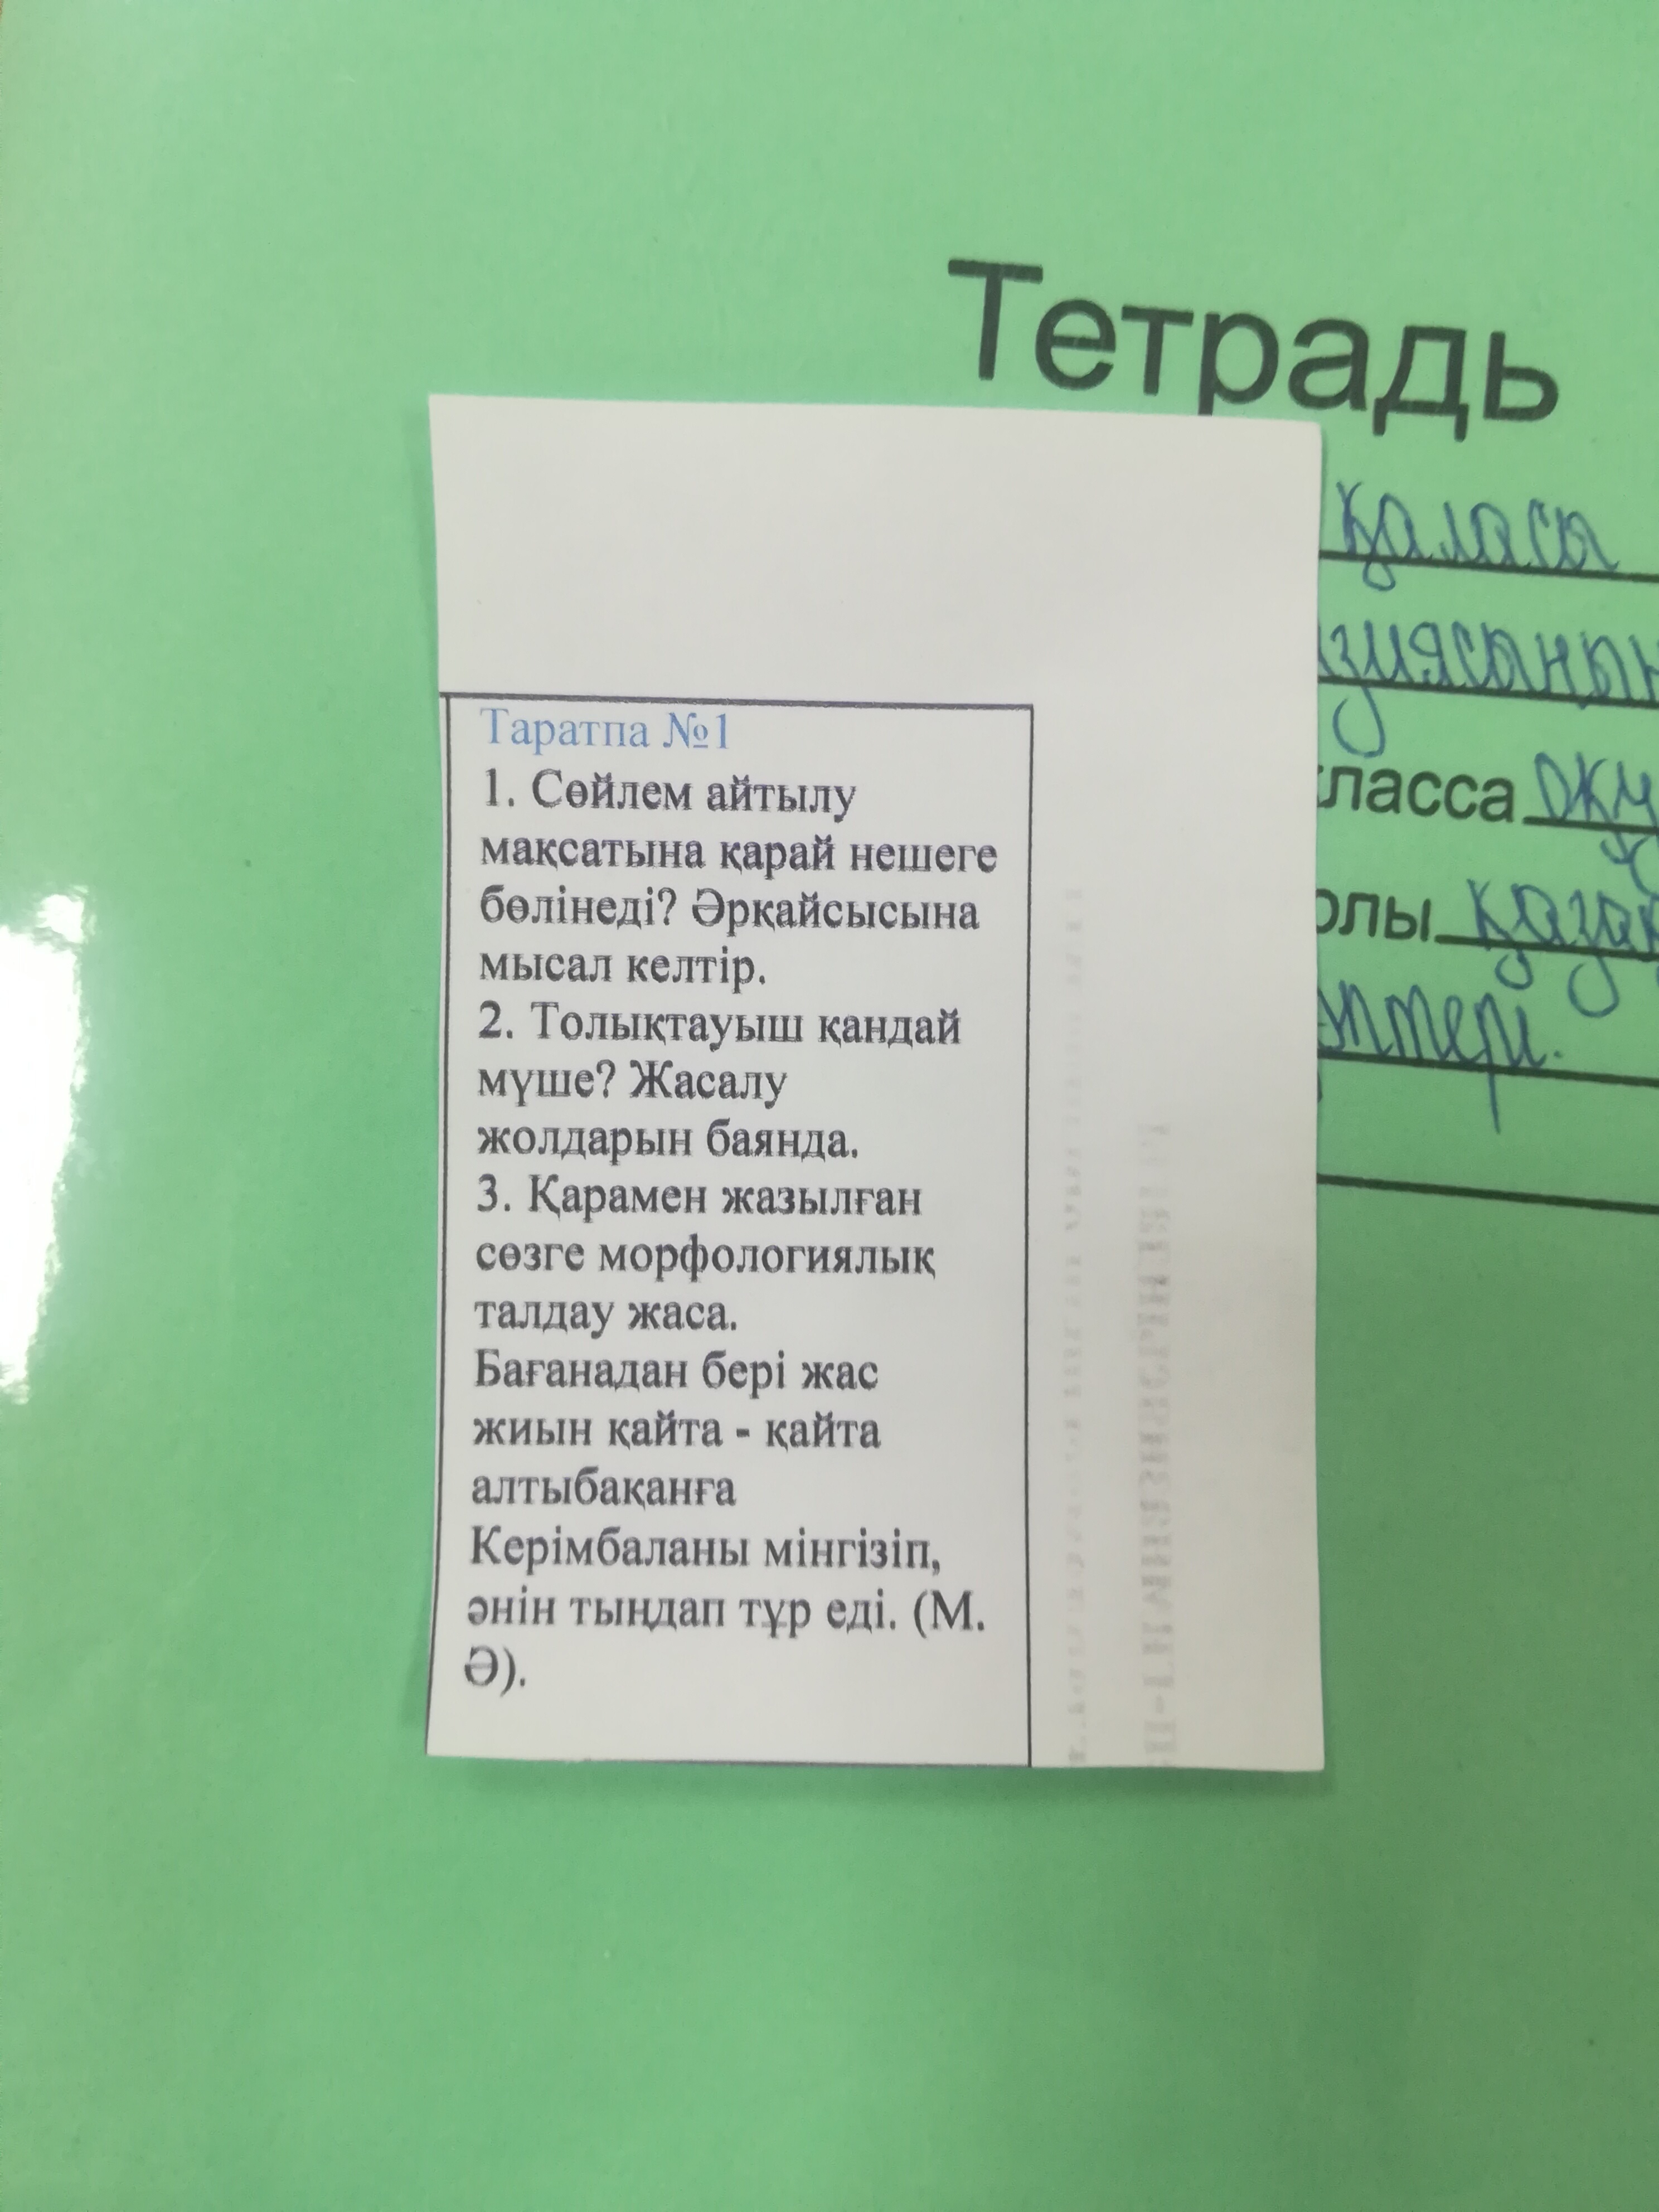 Тетрадь
қаласы
класса
қазақ
Таратпа №1
1. Сөйлем айтылу
мақсатына қарай нешеге
бөлінеді? Әрқайсысына
мысал келтір.
2. Толықтауыш қандай
мүше? Жасалу
жолдарын баянда.
3. Қарамен жазылған
сөзге морфологиялық
талдау жаса.
Бағанадан бері жас
жиын қайта - қайта
алтыбақанға
Керімбаланы мінгізіп,
әнін тыңдап тұр еді. (М.
Ә).